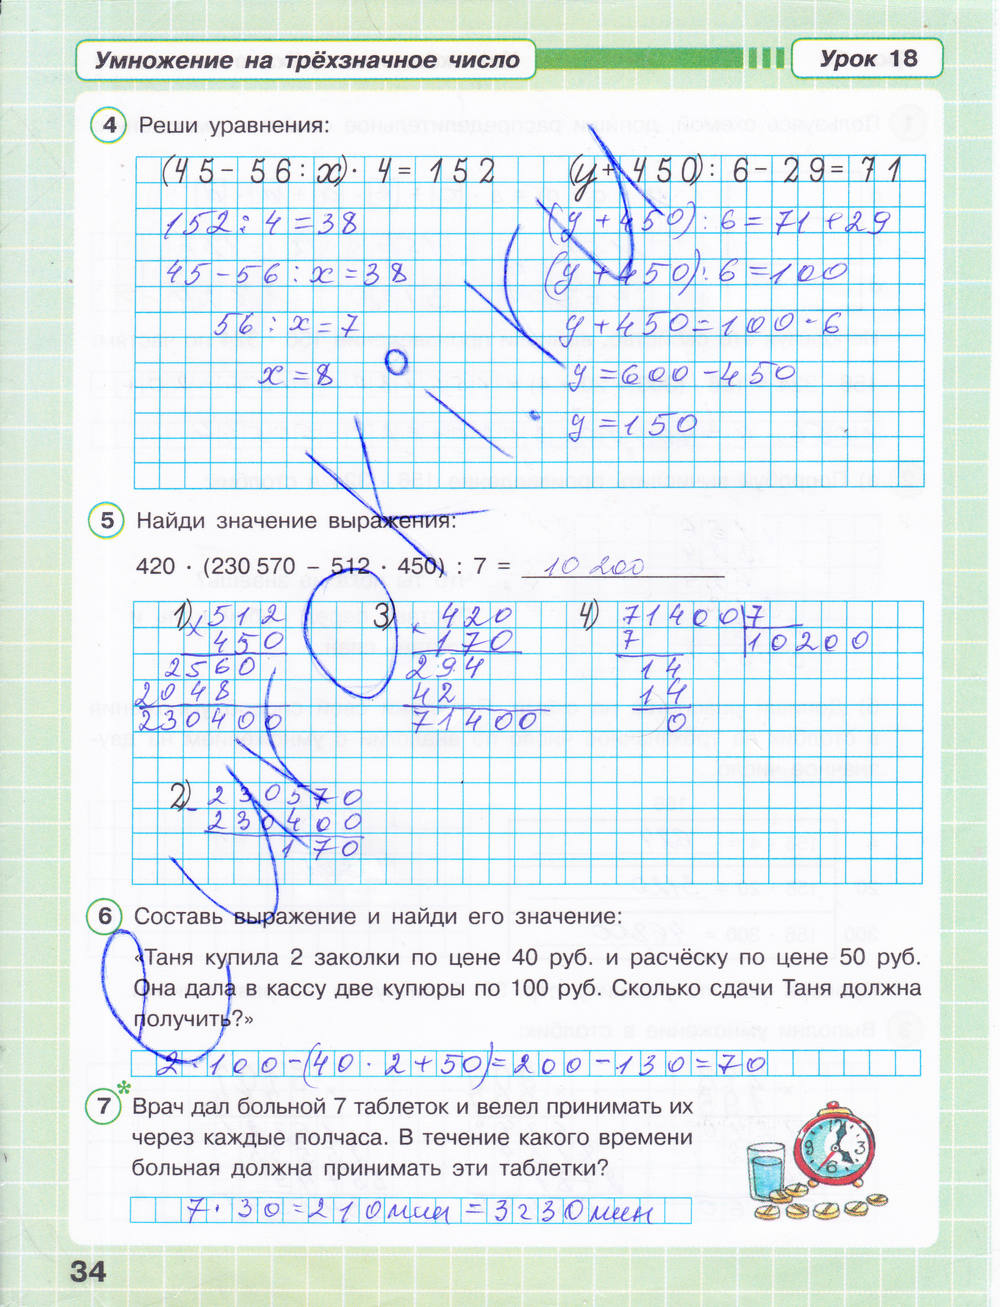 Умножение на трёхзначное число
Урок 18
4 Реши уравнения:
(45 - 56 : x) · 4 = 152
152 : 4 = 38
45 - 56 : x = 38
56 : x = 7
x = 8
(y + 450) : 6 - 29 = 71
(y + 450) : 6 = 71 + 29
(y + 450) : 6 = 100
y + 450 = 100 · 6
y = 600 - 450
y = 150
5 Найди значение выражения:
420 · (230 570 – 512 · 450) : 7 = 10 200
1) × 512
450
2560
2048
230400
3) × 420
170
294
42
71400
4) 71400 7
7 10200
14
14
0
2) - 230570
230400
170
6 Составь выражение и найди его значение:
«Таня купила 2 заколки по цене 40 руб. и расчёску по цене 50 руб.
Она дала в кассу две купюры по 100 руб. Сколько сдачи Таня должна
получить?»
2 · 100 - (40 · 2 + 50) = 200 - 130 = 70
7* Врач дал больной 7 таблеток и велел принимать их
через каждые полчаса. В течение какого времени
больная должна принимать эти таблетки?
7 · 30 = 210 мин = 3 г 30 мин
12
3
6
9
34